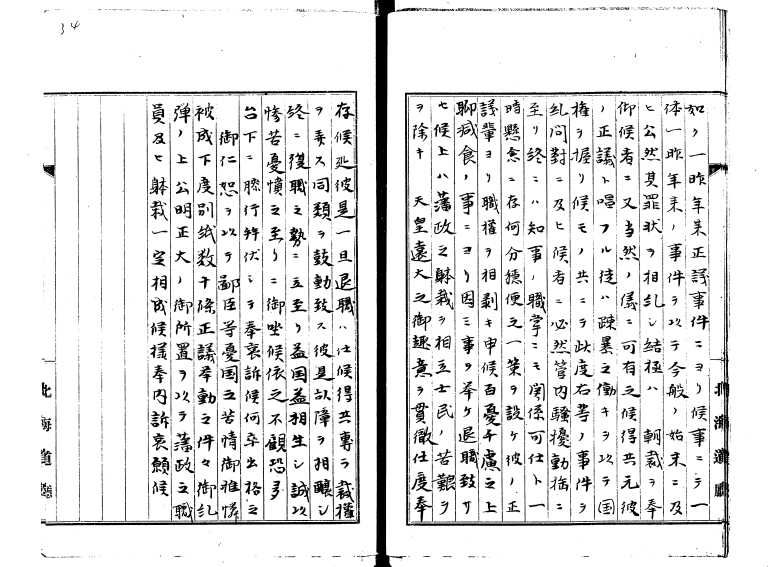 如ク一昨年来正議事件ニヨリ候事ニテ一
体一昨年来ノ事件ヲ以テ今般ノ始末ニ及
ヒ公然其罪状ヲ相糺シ結極ハ 朝裁ヲ奉
仰候者ニ又当然ノ儀ニ可有之候得共元彼
ノ正議ト唱フル徒ハ疎暴之働キヲ以テ国
権ヲ握リ候モノ共ニテ此度右等ノ事件ヲ
糺問對ニ及ヒ候者ニ必然管内騒擾動揺ニ
至リ終ニハ知事ノ職掌ニモ関係可仕ト一
時懸念ニ存何分穏便之一策ヲ設ケ彼ノ正
議輩ヨリ職権ヲ相剥キ申候百憂千慮之上
聊減食ノ事ニヨリ因ミ事ヲ挙ケ退職致サ
セ候上ハ藩政之躰裁ヲ相立士民ノ苦艱ヲ
ヲ除キ 天皇遠大之御趣意ヲ貫徹仕度奉
北海道廳
存候処彼是一旦退職ハ仕候得共専ラ裁権
ヲ奏ス同類ヲ鼓動致ス彼是以障ヲ相醸シ
終ニ復職之勢ニ立至リ益国益相生シ誠以
惨苦憂憤之至リニ御坐候依之不顧恐多
台下ニ膝行拜伏シヲ奉哀訴候何卒出格之
御仁恕ヲ以テ鄙臣等憂国之苦情御推憐
被成下度別紙数十條正議挙動之件々御糺
弾ノ上公明正大ノ御所置ヲ以テ藩政之職
員及ヒ躰裁一定相成候様奉内訴哀願候
北海道廳
34